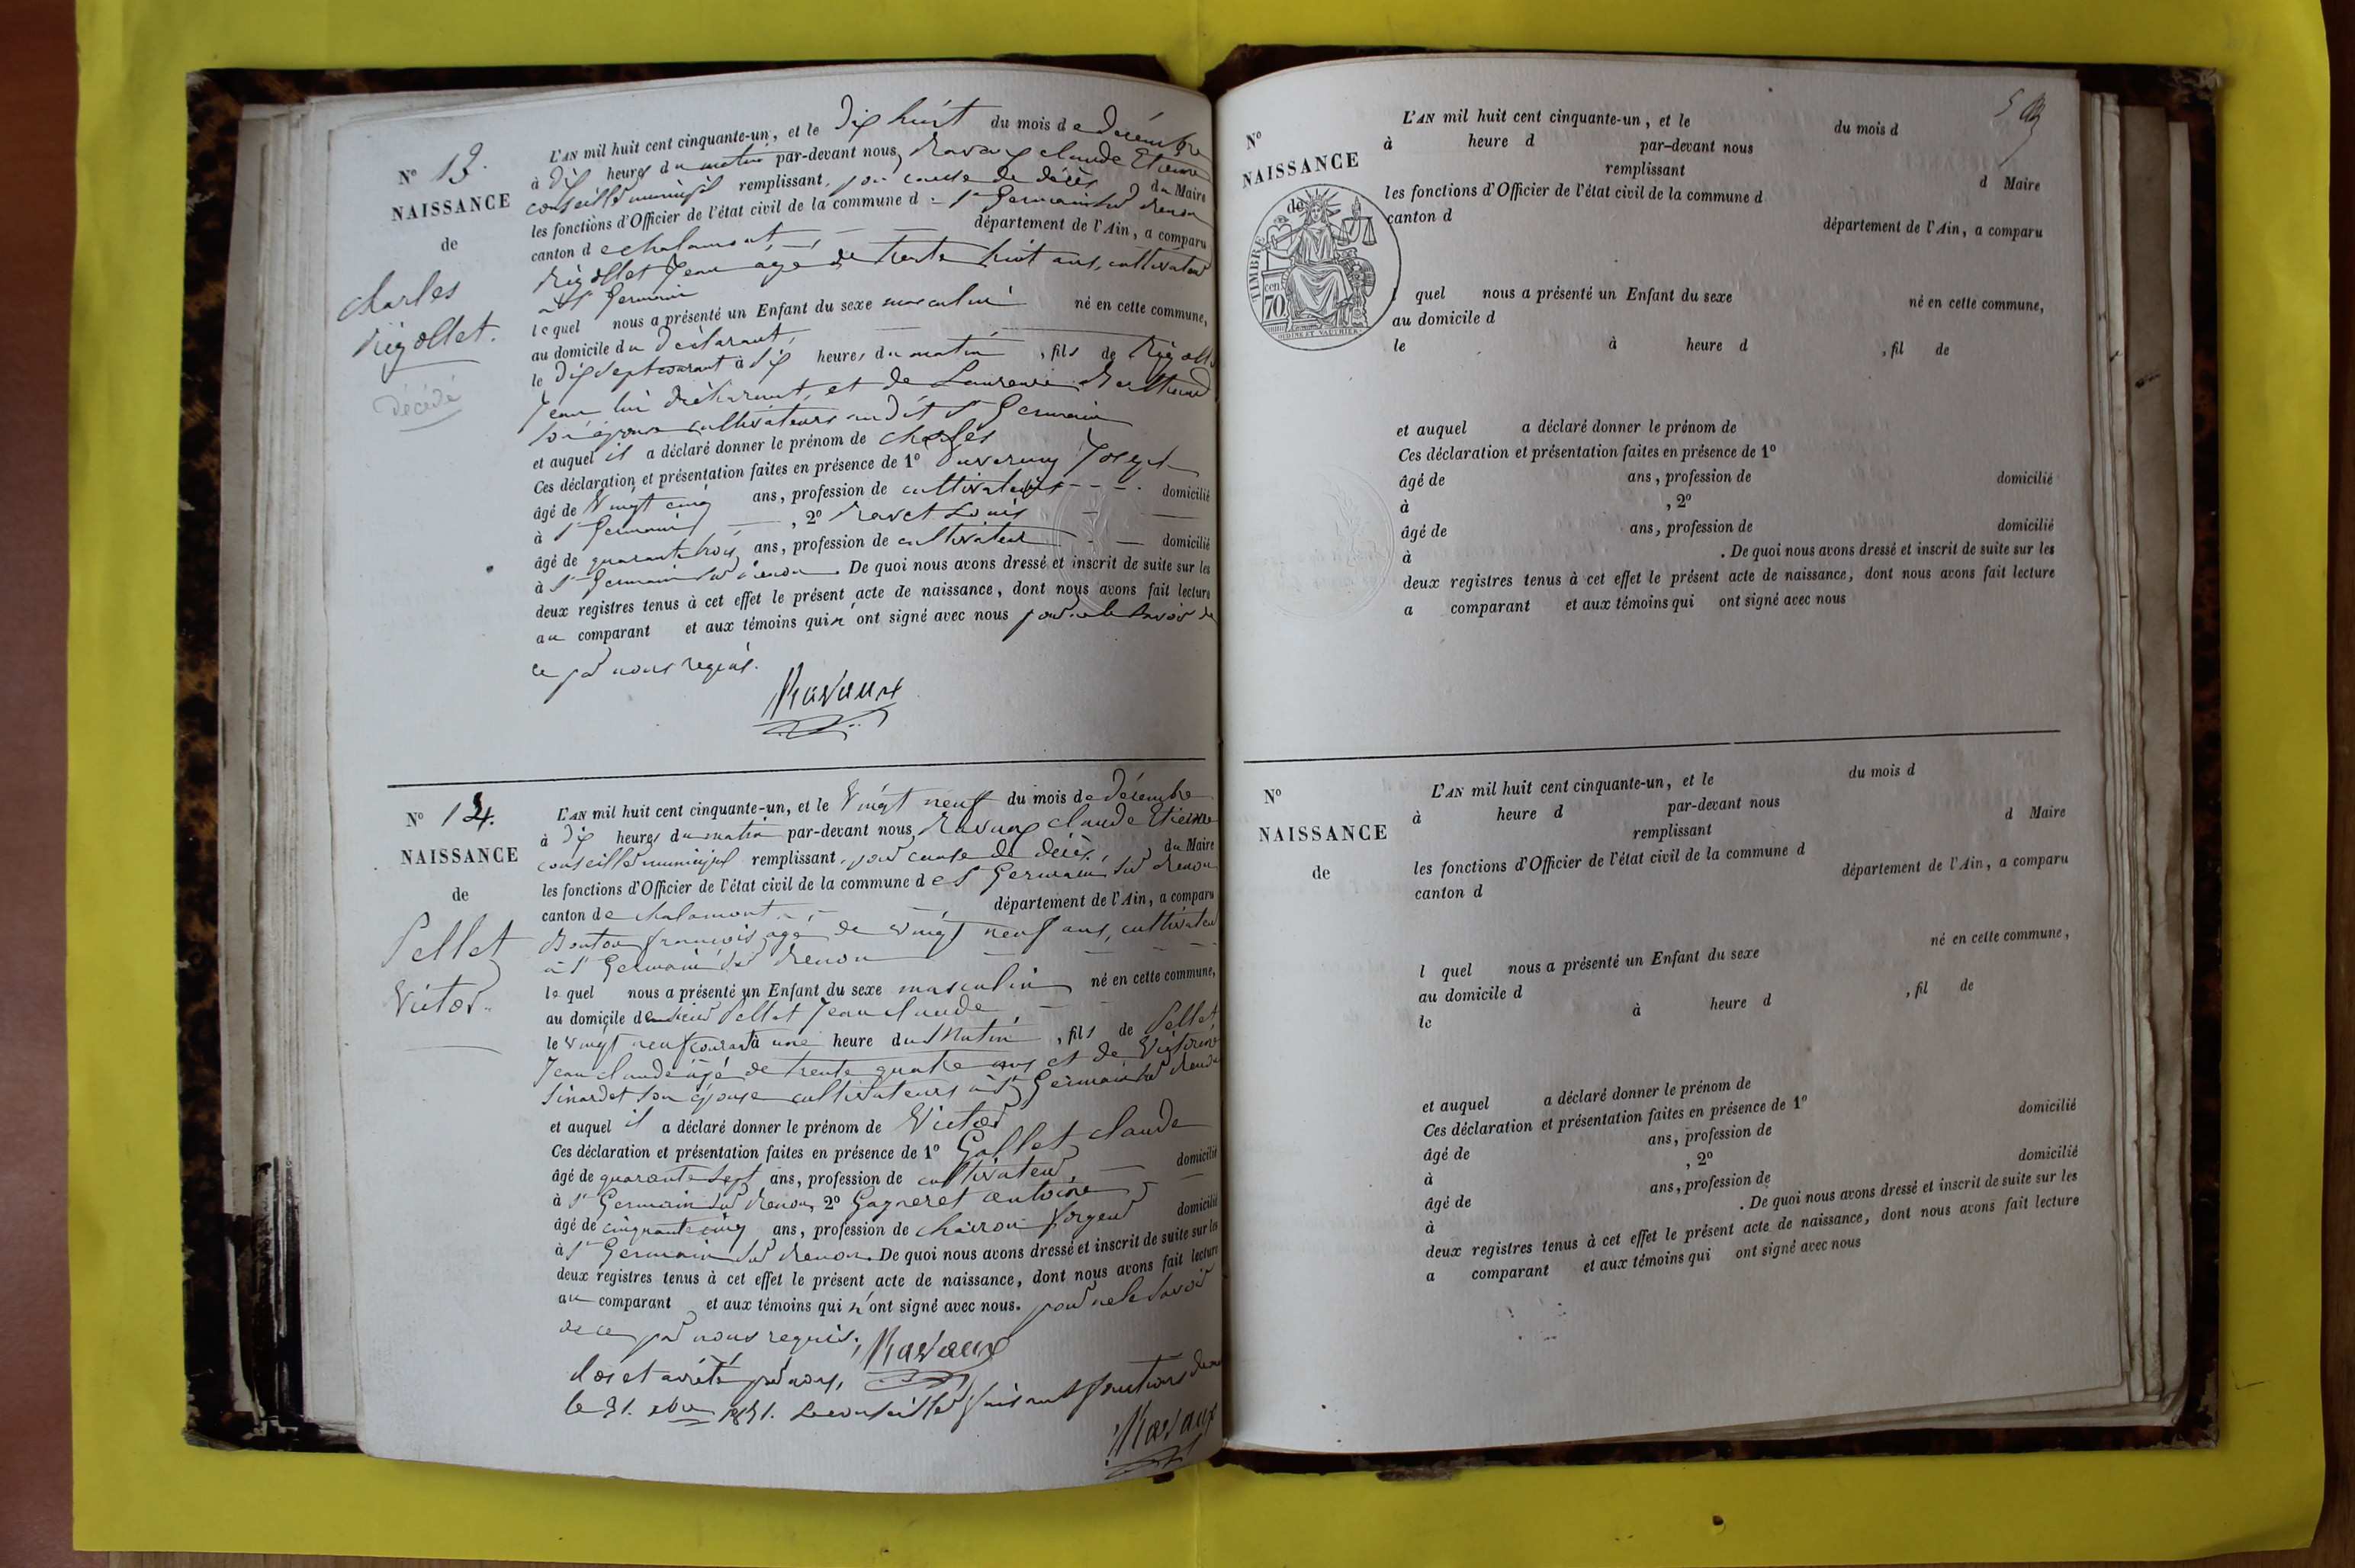 N° 13.
NAISSANCE
de
Charles
Rigollet.
décédé
L'AN mil huit cent cinquante-un, et le dix huit du mois de décembre
à dix heures du matin par-devant nous, Ravaux Claude Etienne
conseiller municipal remplissant, pour cause de décès du Maire
les fonctions d'Officier de l'état civil de la commune d St Germain sur Renon
canton de chalamont, département de l'Ain, a comparu
Rigollet Jean agé de trente huit ans, cultivateur
à St Germain
lequel nous a présenté un Enfant du sexe masculin né en cette commune,
au domicile du déclarant,
le dix sept courant à dix heures du matin, fils de Rigollet
Jean lui déclarant, et de
son épouse cultivateurs audit St Germain
et auquel il a déclaré donner le prénom de charles
Ces déclaration et présentation faites en présence de 1° Joseph
âgé de Vingt cinq ans, profession de cultivateur domicilié
à St Germain, 2° Ravet Louis
âgé de quarante trois ans, profession de cultivateur domicilié
à St Germain sur Renon. De quoi nous avons dressé et inscrit de suite sur les
deux registres tenus à cet effet le présent acte de naissance, dont nous avons fait lecture
au comparant et aux témoins qui n'ont signé avec nous pour ne le savoir de
ce par nous requis.
Ravaux
N° 14.
NAISSANCE
de
Pellet
Victor.
L'AN mil huit cent cinquante-un, et le Vingt neuf du mois de décembre
à dix heures du matin par-devant nous, Ravaux Claude Etienne
conseiller municipal remplissant, pour cause de décès, du Maire
les fonctions d'Officier de l'état civil de la commune de St Germain sur Renon
canton de chalamont, département de l'Ain, a comparu
françois agé de vingt neuf ans, cultivateur
à St Germain sur Renon
lequel nous a présenté un Enfant du sexe masculin né en cette commune,
au domicile de sieur Pellet Jean claude,
le vingt neuf courant à une heure du Matin, fils de Pellet
Jean claude agé de trente quatre ans et de Victorine
Sinardet son épouse cultivateurs à St Germain sur Renon
et auquel il a déclaré donner le prénom de Victor
Ces déclaration et présentation faites en présence de 1° Gallet claude
âgé de quarante sept ans, profession de cultivateur domicilié
à St Germain sur Renon, 2° Gagneret antoine
âgé de cinquante cinq ans, profession de forgeur domicilié
à St Germain sur Renon. De quoi nous avons dressé et inscrit de suite sur les
deux registres tenus à cet effet le présent acte de naissance, dont nous avons fait lecture
au comparant et aux témoins qui n'ont signé avec nous. pour ne le savoir
de ce par nous requis, Ravaux
Clos et arrêté par nous,
le 31. xbre 1851. Le conseiller faisant fonctions de
Ravaux
N°
NAISSANCE
de
TIMBRE
70 cen
L'AN mil huit cent cinquante-un, et le du mois d
à heure d par-devant nous
remplissant d Maire
les fonctions d'Officier de l'état civil de la commune d
canton d département de l'Ain, a comparu
l quel nous a présenté un Enfant du sexe né en cette commune,
au domicile d
le à heure d , fil de
et auquel a déclaré donner le prénom de
Ces déclaration et présentation faites en présence de 1°
âgé de ans, profession de domicilié
à , 2°
âgé de ans, profession de domicilié
à . De quoi nous avons dressé et inscrit de suite sur les
deux registres tenus à cet effet le présent acte de naissance, dont nous avons fait lecture
a comparant et aux témoins qui ont signé avec nous
N°
NAISSANCE
de
L'AN mil huit cent cinquante-un, et le du mois d
à heure d par-devant nous
remplissant d Maire
les fonctions d'Officier de l'état civil de la commune d
canton d département de l'Ain, a comparu
l quel nous a présenté un Enfant du sexe né en cette commune,
au domicile d
le à heure d , fil de
et auquel a déclaré donner le prénom de
Ces déclaration et présentation faites en présence de 1°
âgé de ans, profession de domicilié
à , 2°
âgé de ans, profession de domicilié
à . De quoi nous avons dressé et inscrit de suite sur les
deux registres tenus à cet effet le présent acte de naissance, dont nous avons fait lecture
a comparant et aux témoins qui ont signé avec nous